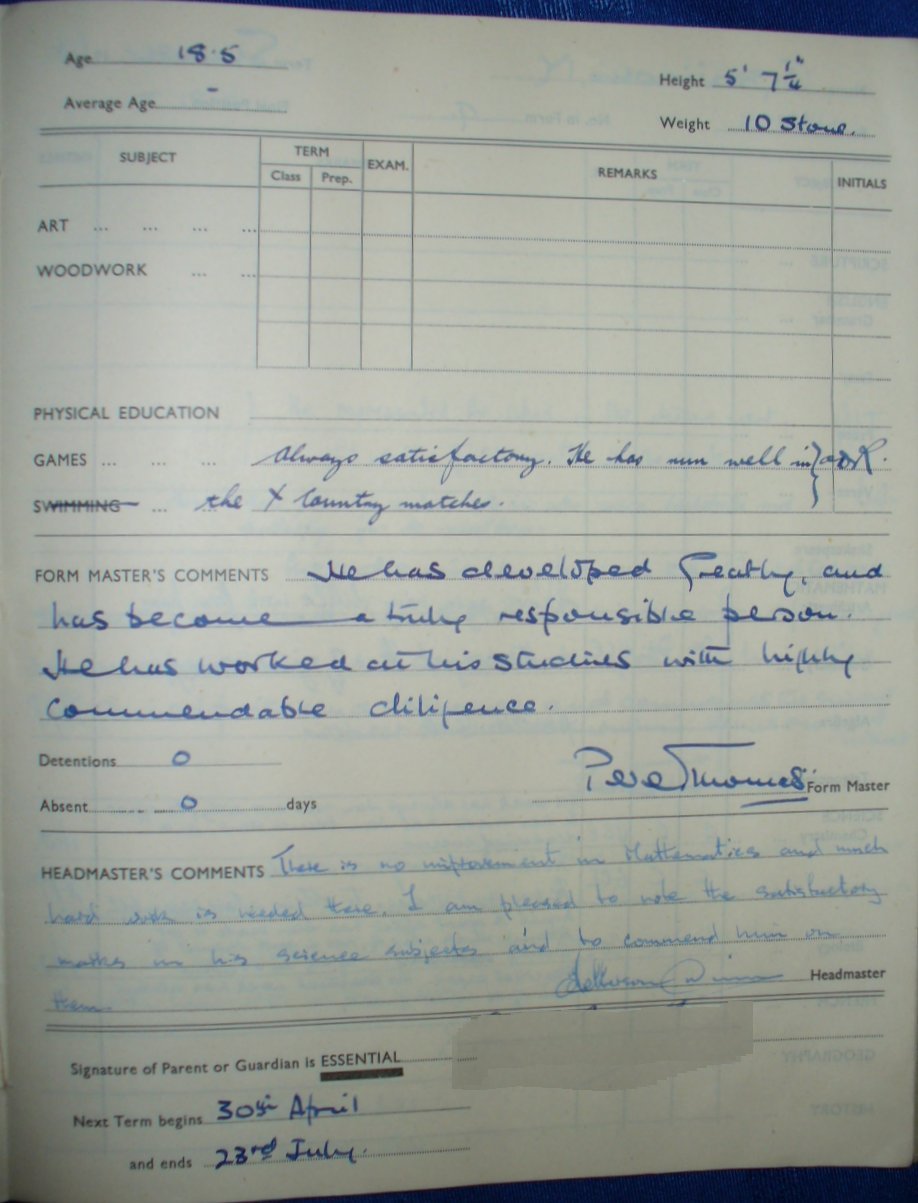 Age 18.5
Height 5' 7¼"
Average Age -
Weight 10 Stone.
SUBJECT TERM EXAM. REMARKS INITIALS
Class Prep.
ART ... ... ... ...
WOODWORK ... ...
PHYSICAL EDUCATION
GAMES ... ... ... Always satisfactory. He has run well in
SWIMMING ... the X Country matches.
FORM MASTER'S COMMENTS He has developed greatly, and
has become a truly responsible person.
He has worked at his studies with highly
commendable diligence.
Detentions 0
Peter Thomas Form Master
Absent 0 days
HEADMASTER'S COMMENTS There is no improvement in Mathematics and much
hard work is needed there. I am pleased to note the satisfactory
marks in his science subjects and to commend him on
them.
Headmaster
Signature of Parent or Guardian is ESSENTIAL
Next Term begins 30th April
and ends 23rd July.